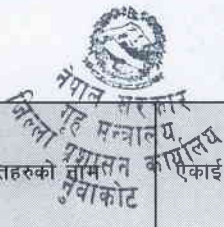 नेपाल सरकार
गृह मन्त्रालय
जिल्ला प्रशासन कार्यालय
नुवाकोट
तहरुको नाम
एकाई